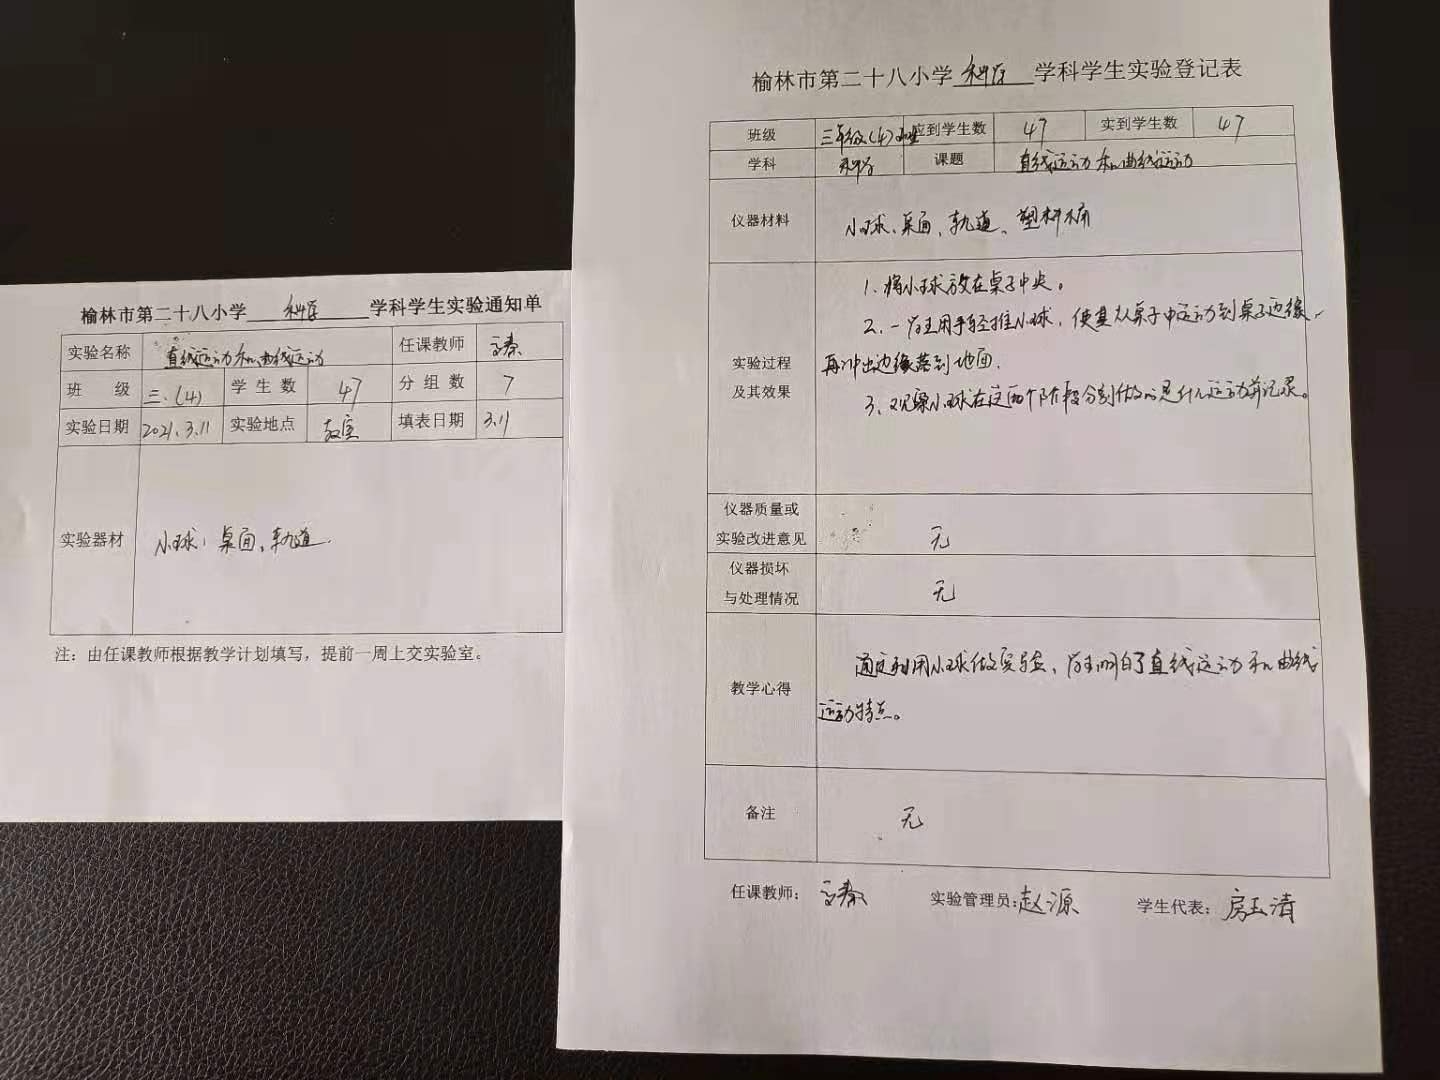 榆林市第二十八小学 科学 学科学生实验通知单
实验名称 直线运动和曲线运动 任课教师
班 级 三.(4) 学生数 47 分组数 7
实验日期 2021.3.11 实验地点 教室 填表日期 3.11
实验器材 小球、桌面、轨道.
注：由任课教师根据教学计划填写，提前一周上交实验室。
榆林市第二十八小学 科学 学科学生实验登记表
班级 三年级(4)班 应到学生数 47 实到学生数 47
学科 科学 课题 直线运动和曲线运动
仪器材料 小球、桌面、轨道、塑料桶
实验过程及其效果
1、将小球放在桌子中央。
2、一学生用手轻推小球，使其从桌子中运动到桌子边缘，
再冲出边缘落到地面.
3、观察小球在这两个阶段分别做的是什么运动并记录。
仪器质量或
实验改进意见 无
仪器损坏
与处理情况 无
教学心得 通过利用小球做实验，学生明白了直线运动和曲线
运动特点。
备注 无
任课教师： 实验管理员:赵源 学生代表：房玉清